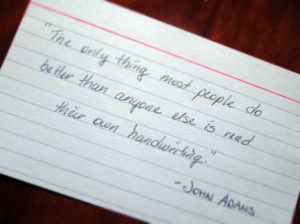 "The only thing most people do
better than anyone else is read
their own handwriting."
-JOHN ADAMS